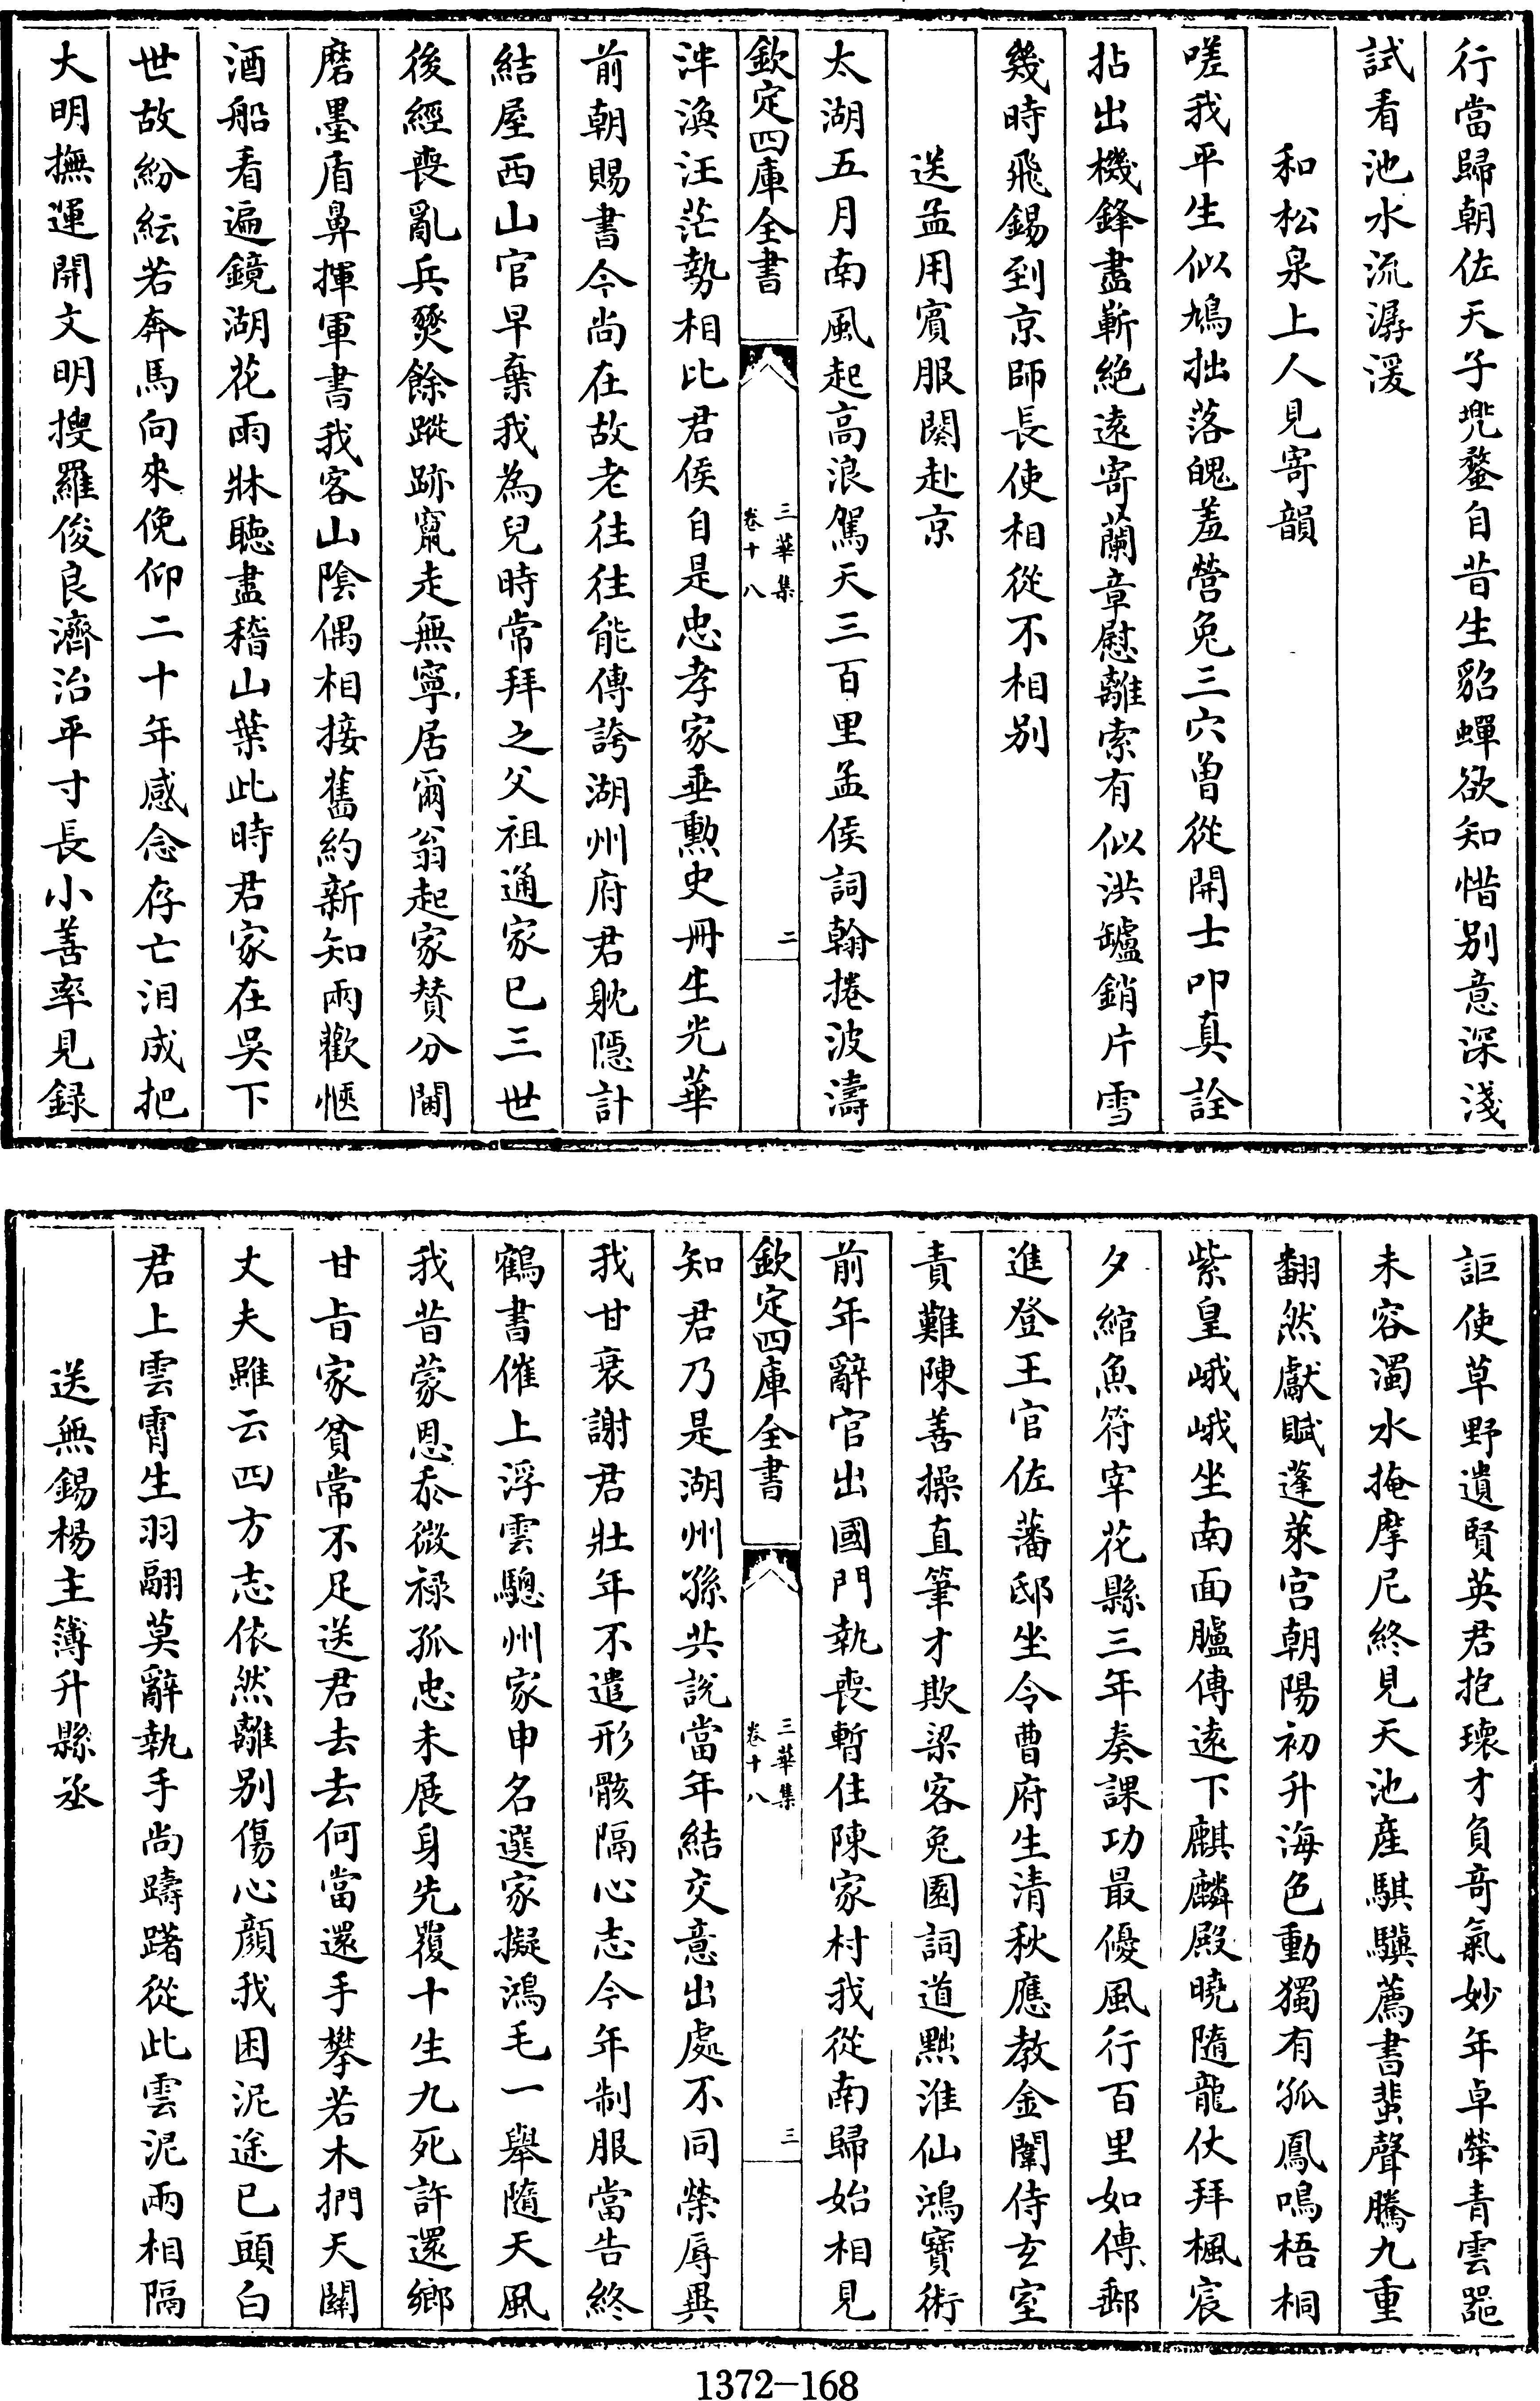 行當歸朝佐天子兠鍪自昔生貂蟬欲知惜别意深淺
試看池水流潺湲
和松泉上人見寄韻
嗟我平生似鳩拙落魄羞營兔三穴曽從開士叩真詮
拈出機鋒盡嶄絶遠寄蘭章慰離索有似洪罏銷片雪
幾時飛錫到京師長使相從不相别
送孟用賔服闋赴京
太湖五月南風起高浪駕天三百里孟侯詞翰捲波濤
欽定四庫全書
三華集
卷十八
二
泮渙汪茫勢相比君侯自是忠孝家垂勲史冊生光華
前朝賜書今尚在故老往往能傳誇湖州府君躭隱計
結屋西山官早棄我為兒時常拜之父祖通家已三世
後經喪亂兵燹餘蹤跡竄走無寧居爾翁起家贊分閫
磨墨盾鼻揮軍書我客山陰偶相接舊約新知兩歡愜
酒船看遍鏡湖花雨牀聽盡稽山葉此時君家在吳下
世故紛紜若奔馬向來俛仰二十年感念存亡泪成把
大明撫運開文明搜羅俊良濟治平寸長小善率見録
詎使草野遺賢英君抱瓌才負竒氣妙年卓犖青雲器
未容濁水掩摩尼終見天池産騏驥薦書蜚聲騰九重
翻然獻賦蓬萊宫朝陽初升海色動獨有孤鳳鳴梧桐
紫皇峨峨坐南面臚傳遠下麒麟殿曉隨龍仗拜楓宸
夕綰魚符宰花縣三年奏課功最優風行百里如傳郵
進登王官佐藩邸坐令曹府生清秋應教金闈侍玄室
責難陳善操直筆才欺梁客兔園詞道黜淮仙鴻寶術
前年辭官出國門執喪暫住陳家村我從南歸始相見
欽定四庫全書
三華集
卷十八
三
知君乃是湖州孫共説當年結交意出處不同榮辱異
我甘衰謝君壯年不遣形骸隔心志今年制服當告終
鶴書催上浮雲驄州家申名選家擬鴻毛一舉隨天風
我昔蒙恩忝微禄孤忠未展身先覆十生九死許還鄉
甘㫖家貧常不足送君去去何當還手攀若木捫天關
丈夫雖云四方志依然離别傷心顔我困泥途已頭白
君上雲霄生羽翮莫辭執手尚躊躇從此雲泥兩相隔
送無錫楊主簿升縣丞
1372-168